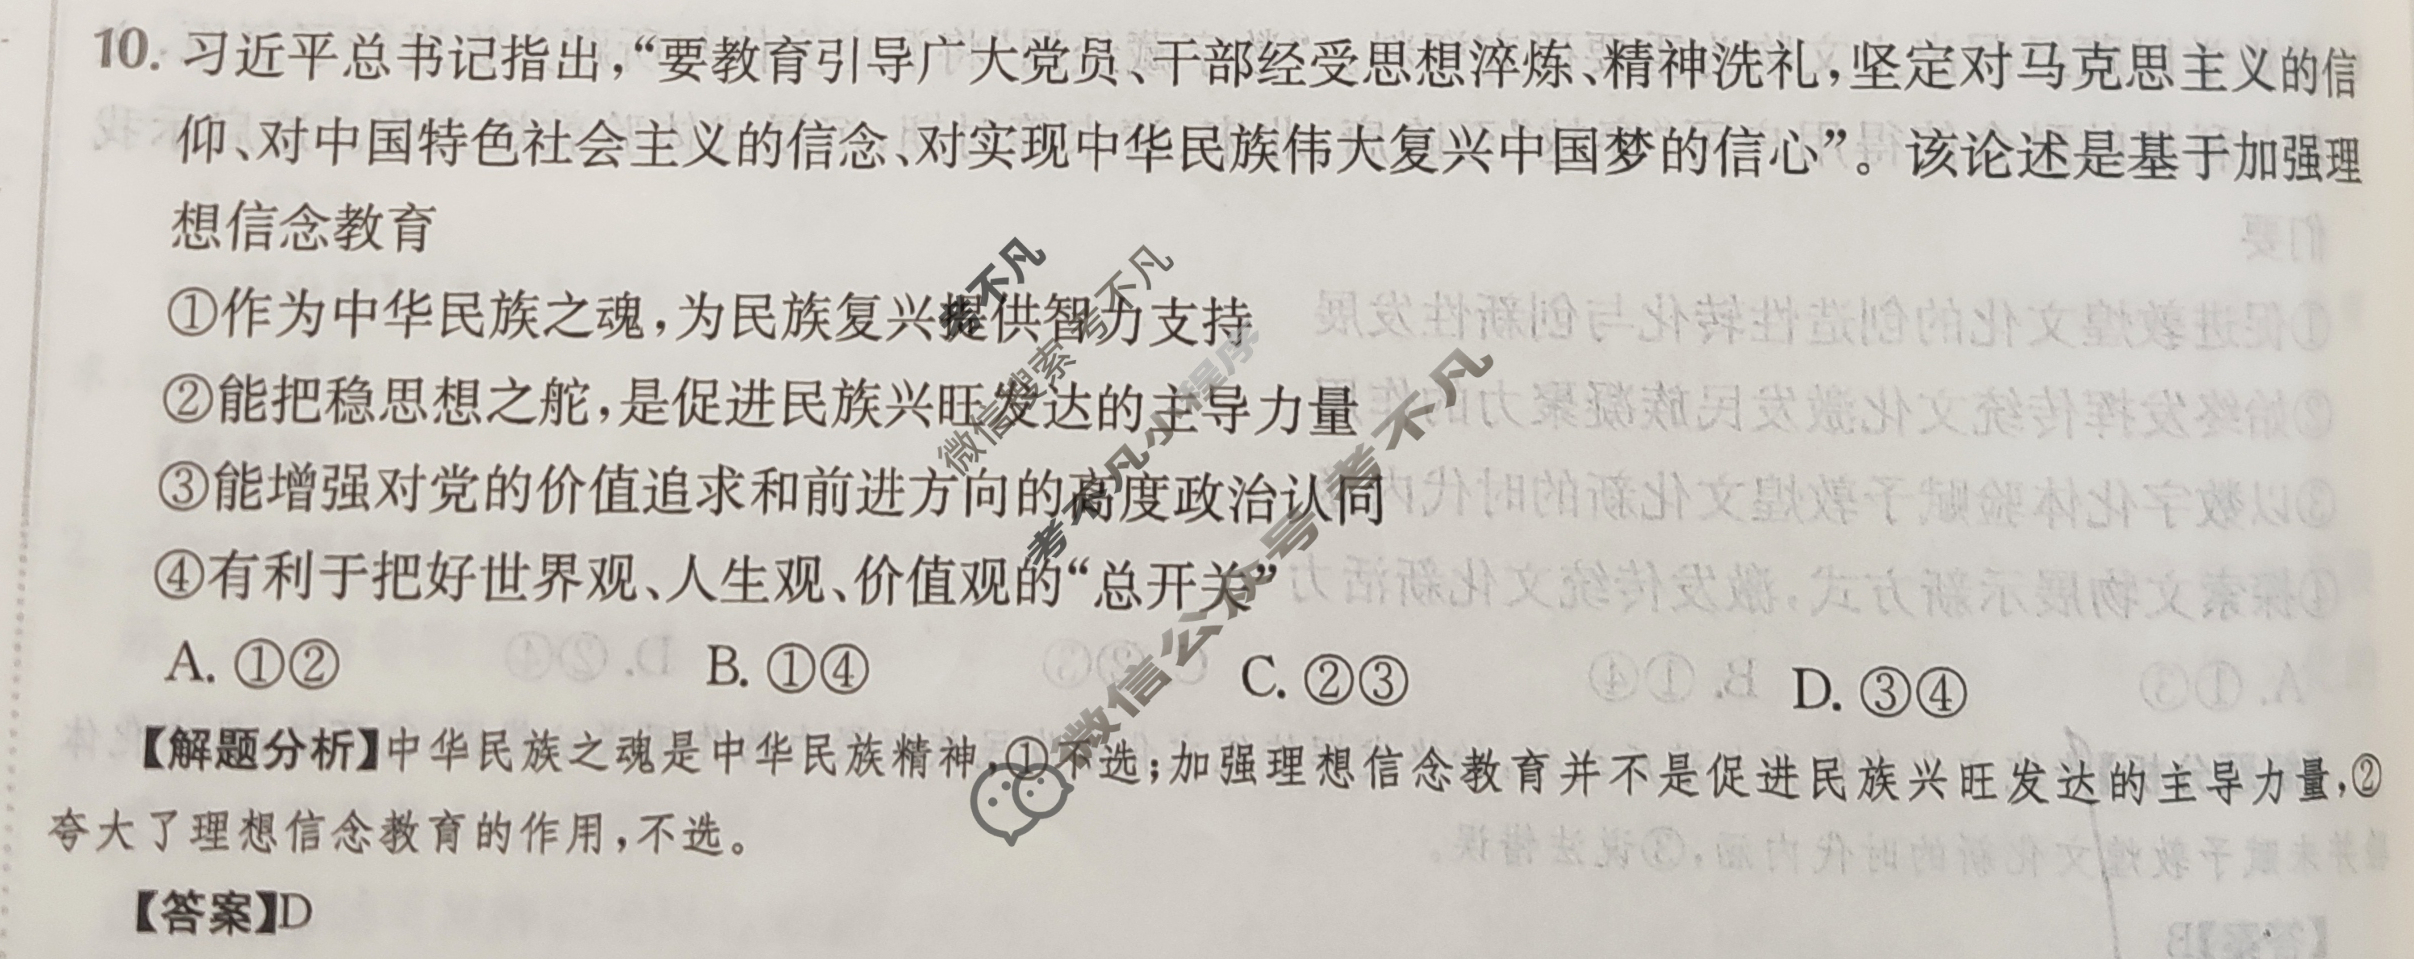 10. 习近平总书记指出，“要教育引导广大党员、干部经受思想淬炼、精神洗礼，坚定对马克思主义的信
仰、对中国特色社会主义的信念、对实现中华民族伟大复兴中国梦的信心”。该论述是基于加强理
想信念教育
①作为中华民族之魂，为民族复兴提供智力支持
②能把稳思想之舵，是促进民族兴旺发达的主导力量
③能增强对党的价值追求和前进方向的高度政治认同
④有利于把好世界观、人生观、价值观的“总开关”
A. ①② B. ①④ C. ②③ D. ③④
【解题分析】中华民族之魂是中华民族精神，①不选；加强理想信念教育并不是促进民族兴旺发达的主导力量，②
夸大了理想信念教育的作用，不选。
【答案】D
考不凡
微信搜索 考不凡
考不凡小程序
微信公众号 考不凡